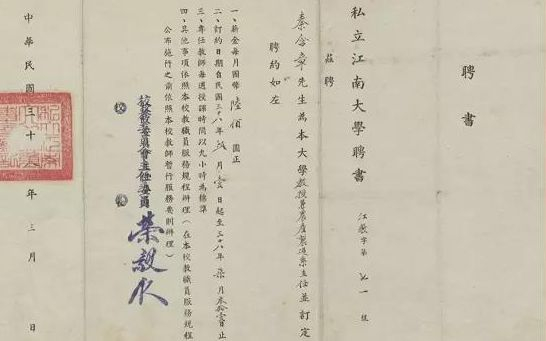 聘書
私立江南大學聘書 江教字第七一號
茲聘
秦含章先生為本大學教授兼農產製造系主任並訂定
聘約如左
一、薪金每月國幣陸佰圓正
二、訂約日期自民國三十八年 月壹日起至三十八年柒月 拾壹日止
三、專任教師每週授課時間以九小時為標準
四、其他事項依照本校教職員服務規程辦理（在本校教職員服務規程
公布施行之前依照本校教師暫行服務要則辦理）
校務委員會主任委員
榮毅仁
中華民國三十 年三月 日